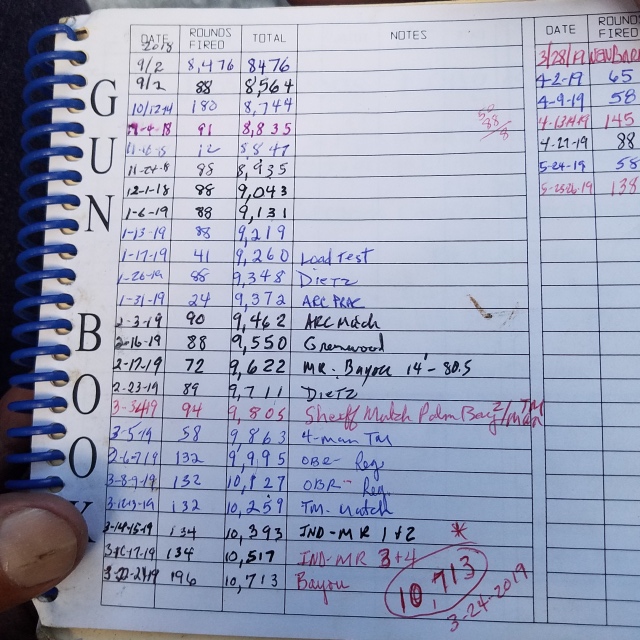 DATE ROUNDS FIRED TOTAL NOTES
2018
9/2 8,476 8476
9/2 88 8,564
180 8,744
91 8,835
12 8847
88 8,935
12-1-18 88 9,043
1-6-19 88 9,131
1-13-19 88 9,219
1-17-19 41 9,260 Load Test
1-26-19 88 9,348 Dietz
1-31-19 24 9,372 ARC PRAC
2-3-19 90 9,462 ARC Match
2-16-19 88 9,550 Greenwood
2-17-19 72 9,622 MR. Bayou 14' - 80.5
2-23-19 89 9,711 Dietz
94 9,805 Sheriff Match Palm Bay 2/Man TM
3-5-19 58 9,863 4-man TM
132 9,995 OBR- Reg
3-8-9-19 132 10,127 OBR- Reg
132 10,259 TM- Match
3-14-15-19 134 10,393 IND-MR 1+2 *
3-16-17-19 134 10,517 IND-MR 3+4
196 10,713 Bayou
10,713
3-24-2019
50
88/8
GUN BOOK
DATE ROUNDS FIRED
3/28/19 NEW BAR
4-2-19 65
4-9-19 58
145
4-27-19 88
5-24-19 58
138